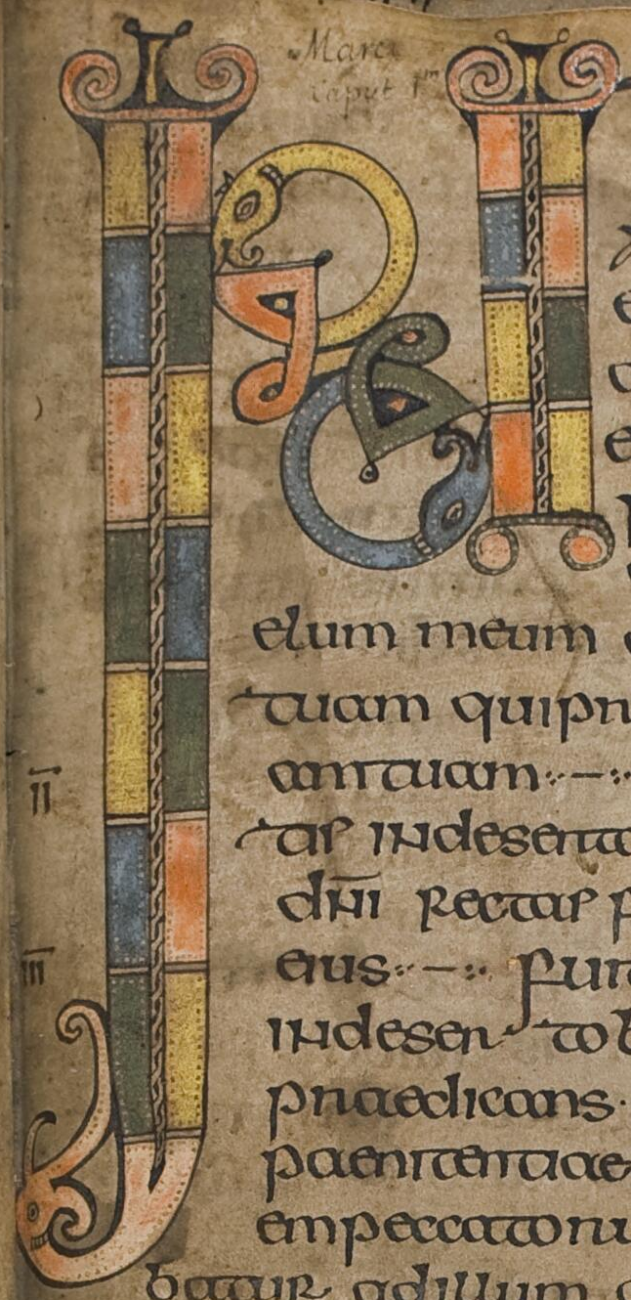 Marci
caput 1m
INI
elum meum
tuam quipr
am tuam
II
tis indeserto
dni rectas f
eius
fuit
III
indeser to b
praedicans
paenitentiae
em peccatoru
batur adillum